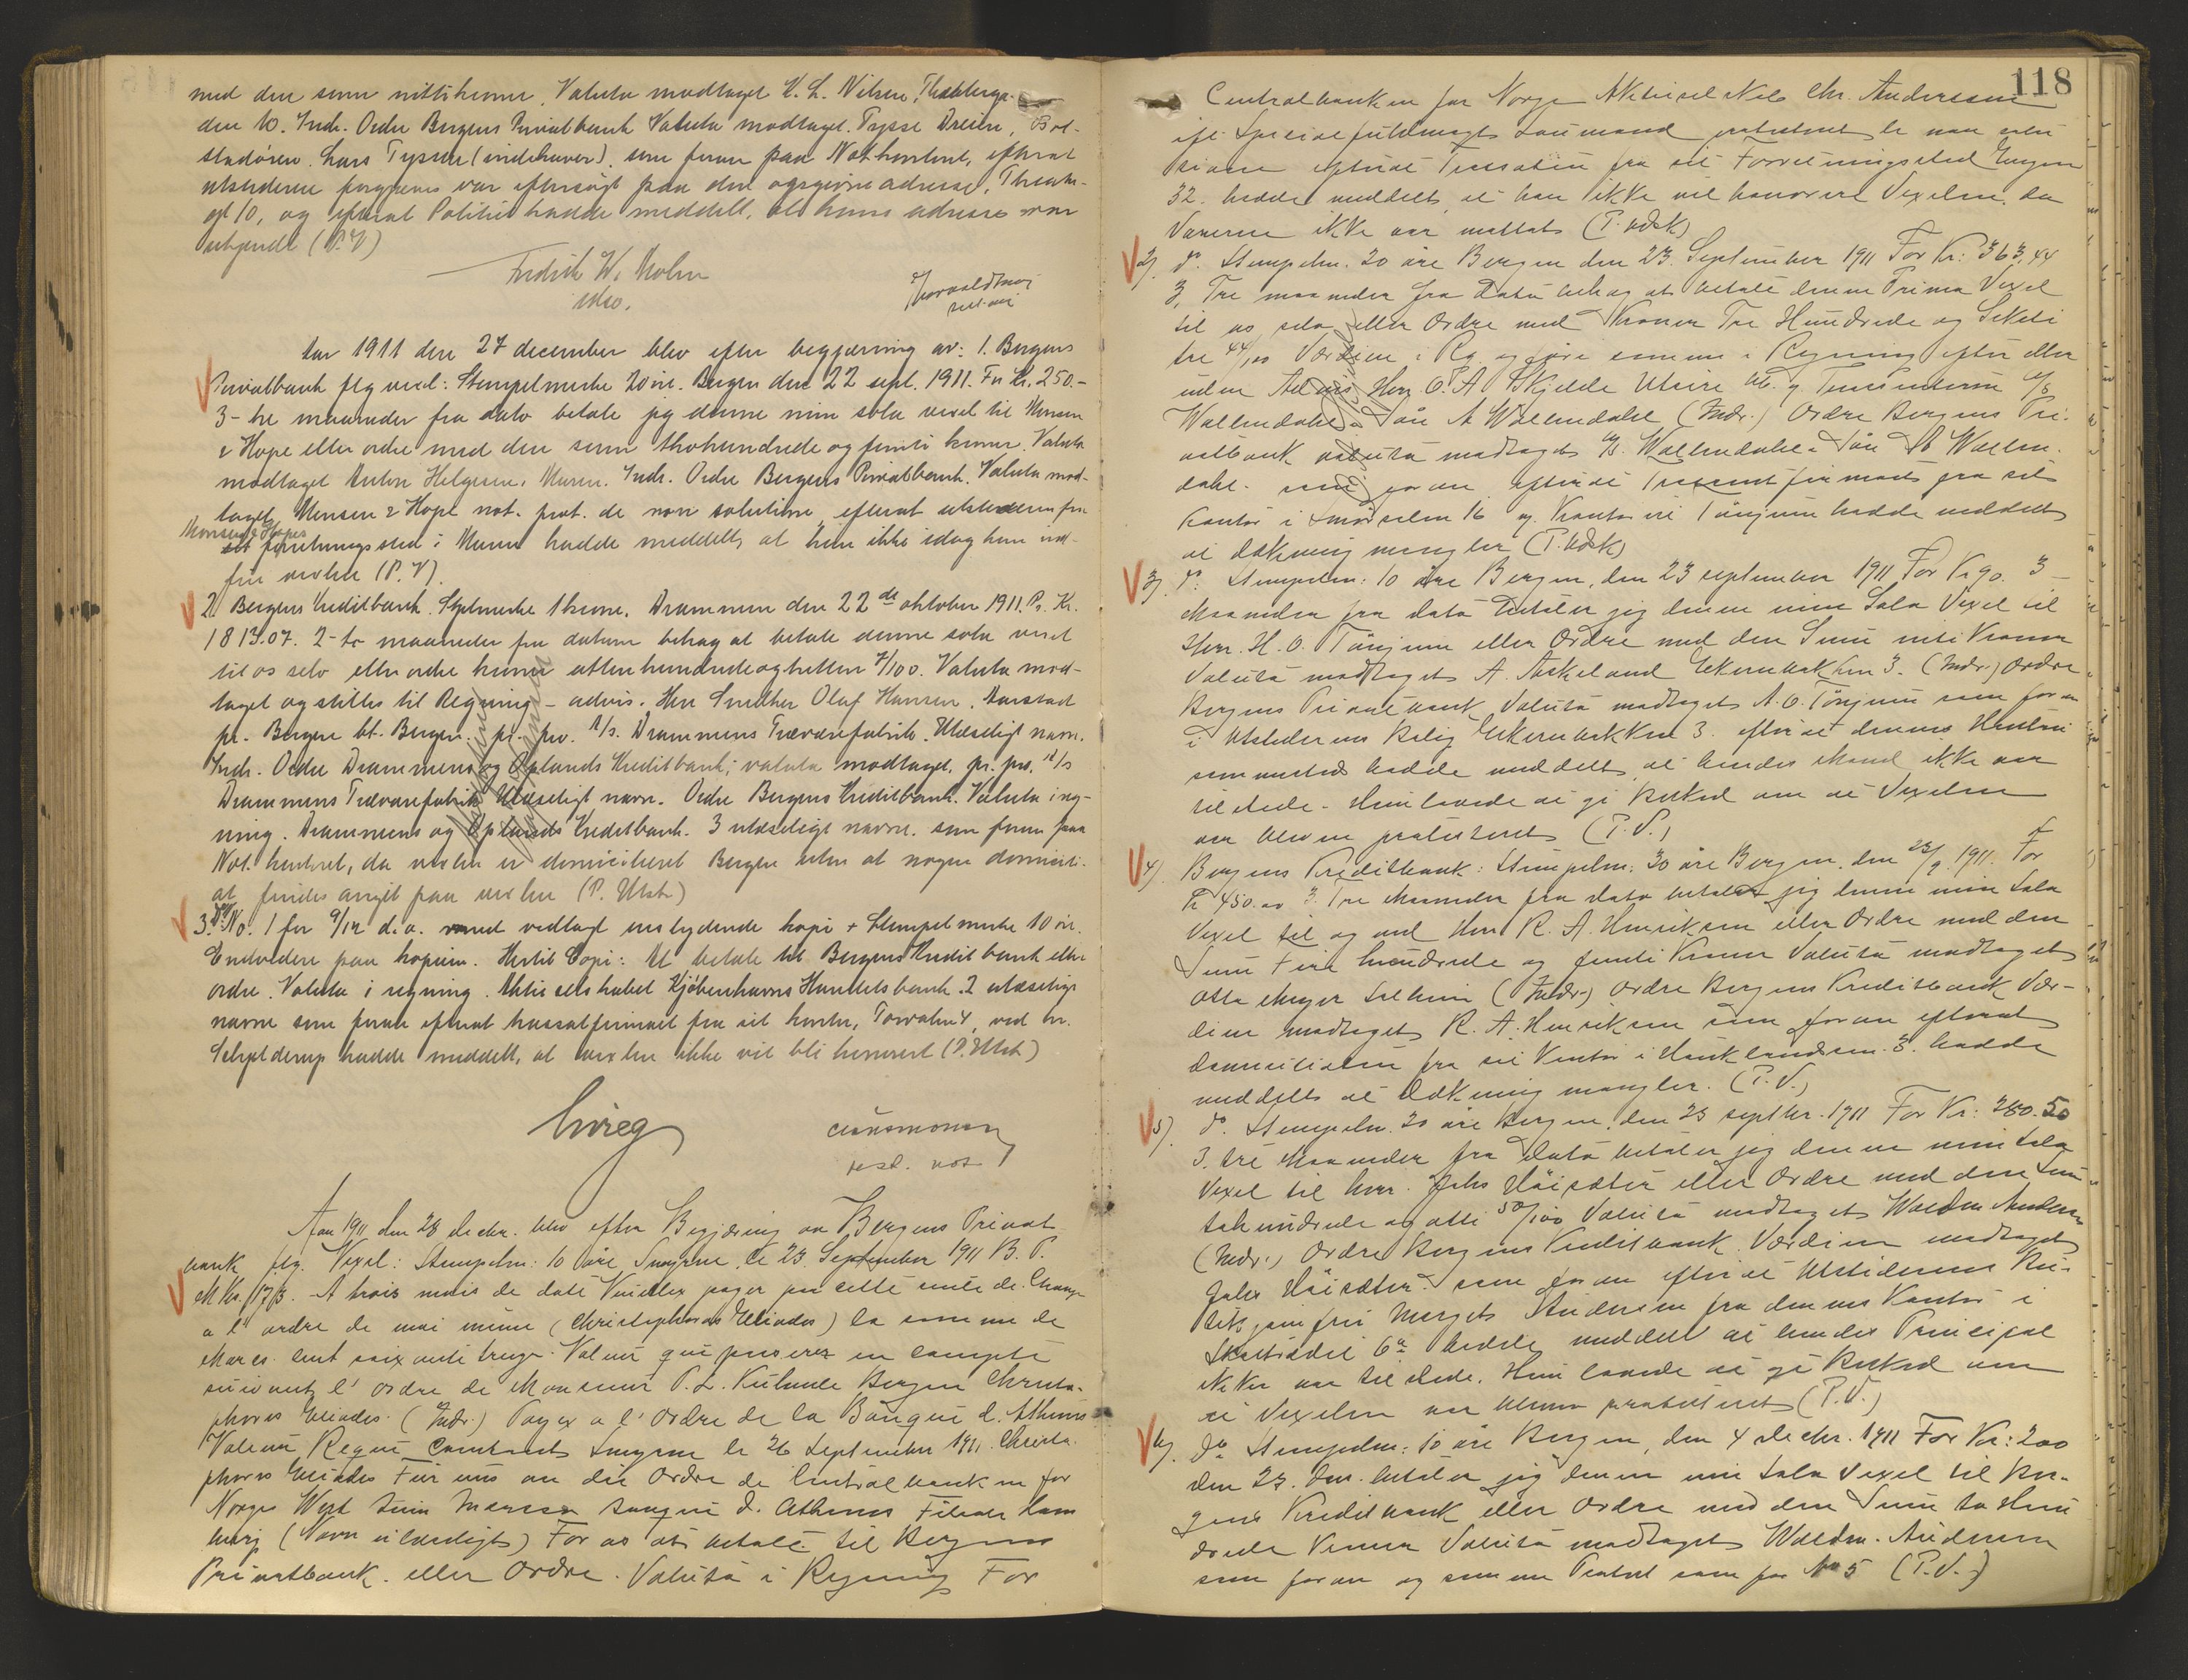 med den sum nittikroner. Valuta modtaget K. L. Nilsen,
den 10. Indr. Ordre Bergens Privatbank Valuta modtaget. Tysse
Lars Tyssen (indehaver). som foran paa Notkontoret, efterat
utstederen forgjæves var eftersøgt paa den opgivne adresse, Theater-
gt 10, og efterat Politiet hadde meddelt, at hans adresse var
ukjendt (P. V)
Fredrik W. Holm
Aar 1911 den 27 december blev efter begjæring av: 1. Bergens
Privatbank flg vexel: Stempelmerke 20 øre. Bergen den 22 sept. 1911. For Kr. 250.-
3- tre maaneder fra dato betale jeg denne min sola vexel til Monsen
& Hope eller ordre med den sum tohundrede og femti kroner. Valuta
modtaget Anton Helgesen, Muren. Indr. Ordre Bergens Privatbank. Valuta mod-
taget, Monsen & Hope not. prot. de non solutione efterat utstederen fra
Monsen & Hopes
sit forretningssted i Muren hadde meddelt, at han ikke idag kan ind-
fri vexlen (P. V).
2. Bergens Kreditbank. Stplmerke 1 krone. Drammen den 22 de oktober 1911. Pr. Kr.
1813.07. 2- to maaneder fra datum behag at betale denne sola vexel
til os selv eller ordre kroner attenhundrede og tretten 7/100. Valuta mod-
taget og stilles til Regning - advis. Herr Snedker Olaf Hansen, Aarstad
pr. Bergen bt. Bergen. pr. pro. A/S. Drammens Trævarefabrik. Ulæseligt navn.
Indr. Ordre Drammens og Oplands Kreditbank; valuta modtaget. pr. pro. A/S
Drammens Trævarefabrik Ulæseligt navn. Ordre Bergens Kreditbank. Valuta i reg-
ning. Drammens og Oplands Kreditbank. 3 ulæselige navne. som foran paa
Not. kontoret, da vexlen er domicilieret Bergen uten at nogen domicili-
at findes angit paa vexlen (P. Utst.)
3. Do No. 1 for 9/12 d.a. med vedlagt enslydende kopi + Stempelmerke 10 øre.
Endvidere paa kopien. Hertil Copi: At betale til Bergens Kreditbank eller
ordre. Valuta i regning. Aktieselskabet Kjøbenhavns Handelsbank. 2 ulæselige
navne som foran efterat trassatfirmaet fra sit kontor, Torvalm. 4, ved hr.
Schjelderup hadde meddelt, at vexlen ikke vil bli honorert (P. Utst.)
Aar 1911 den 28 decbr. blev efter Begjæring av Bergens Privat
bank flg. Vexel: Stempelm: 10 øre Smyrne, le 23 September 1911 B. P.
A trois mois de date Veuillez payer par cette seule de Change
a l' ordre de moi même (Christophoros Eliades) la somme de
Marcs. cent soixante treize. Valeur que passerez en compte
suivant l' ordre de Monsieur P. L. Kuhnle Bergen Christo-
phoros Eliades. (Indr.) Payez a l' ordre de la Banque d. Athenes
Valeur Reçue Comptant Smyrne le 26 September 1911. Christo-
phoros Eliades Für uns an die Ordre de Centralbanken for
Norge Wert Banque d. Athenes Filiale Ham
burg (Navn ulæseligt) For os at betale til Bergens
Privatbank. eller Ordre. Valuta i Regning For
118
Centralbanken for Norge Aktieselskab Chr. Anderssen
ifl. Specialfuldmagt
efterat Trassaten fra sit Forretningssted Engen
32. hadde meddelt, at han ikke vil honorere Vexelen, da
Varerne ikke var mottat (P. Udst)
2). do. Stempelm. 20 øre Bergen den 23. September 1911 For Kr: 363.44
3, Tre maaneder fra Dato behag at betale denne Prima Vexel
til os selv eller Ordre med Kroner Tre Hundrede og Seksti
tre 44/100 Værdien i Rg. og føre samme i Regning efter eller
uden Advis Herr O. A. Skjelde Utvire
Wallendahl & Søn A Wallendahl (Indr.) Ordre Bergens Pri-
vatbank valuta modtaget A/S. Wallendahl & Søn A Wallen-
dahl. som foran efterat Trassentfirmaet fra sit
Kontor i Smørsalm 16 og Kontorist Tønjum hadde meddelt
at dækning mangler (P. Udst)
3). do. Stempelm: 10 øre Bergen, den 23 september 1911 For Kr 90. 3 -
Maaneder fra Dato betaler jeg denne min Sola Vexel til
Herr. H. O. Tønjum eller Ordre med den Sum niti Kroner
Valuta modtaget A. Askeland 3. (Indr.) Ordre
Bergens Privatbank Valuta modtaget H. O. Tønjum som foran
i Utstederens Bolig 3. efterat dennes Hustru
sammesteds hadde meddelt, at hendes Mand ikke var
tilstede. Hun lovede at gi Besked om at Vexelen
var bleven protesteret (P. V.)
4). Bergens Kreditbank: Stempelm: 30 øre Bergen. den 23/9 1911. For
Kr 450.00 3. Tre Maaneder fra Dato betaler jeg denne min Sola
Vexel til og ved Herr R. A. Henriksen eller Ordre med den
Sum Fire hundrede og femti Kroner Valuta modtaget
Otto Meyer (Indr.) Ordre Bergens Kreditbank Vær-
dien modtaget R. A. Henriksen som foran efterat
Domiciliaten fra sit Kontor i Hauklandsm. 3. hadde
meddelt at Dækning mangler. (P. V.)
5). do. Stempelm. 20 øre Bergen, den 23 septbr. 1911 For Kr: 280.50
3. tre Maaneder fra Dato betaler jeg denne min Sola
Vexel til herr. Johs Høisæter eller Ordre med den Sum
tohundrede og otti 50/100 Valuta modtaget Waldm. Andersen
(Indr.) Ordre Bergens Kreditbank. Værdien modtaget
Johs Høisæter som foran efterat Utstederens Bu-
tikjomfru Margit Andersen fra dennes Kontor i
6a hadde meddelt at hendes Principal
ikke var tilstede. Hun lovede at gi Besked om
at Vexelen var bleven protesteret (P. V.)
6). do. Stempelm: 10 øre Bergen, den 4 decbr. 1911 For Kr: 200
den 23. dm. betaler jeg denne min Sola Vexel til Ber-
gens Kreditbank eller Ordre med den Sum to Hun
drede Kroner Valuta modtaget Waldm. Andersen
som foran og samme Protest som for No 5 (P. V.)